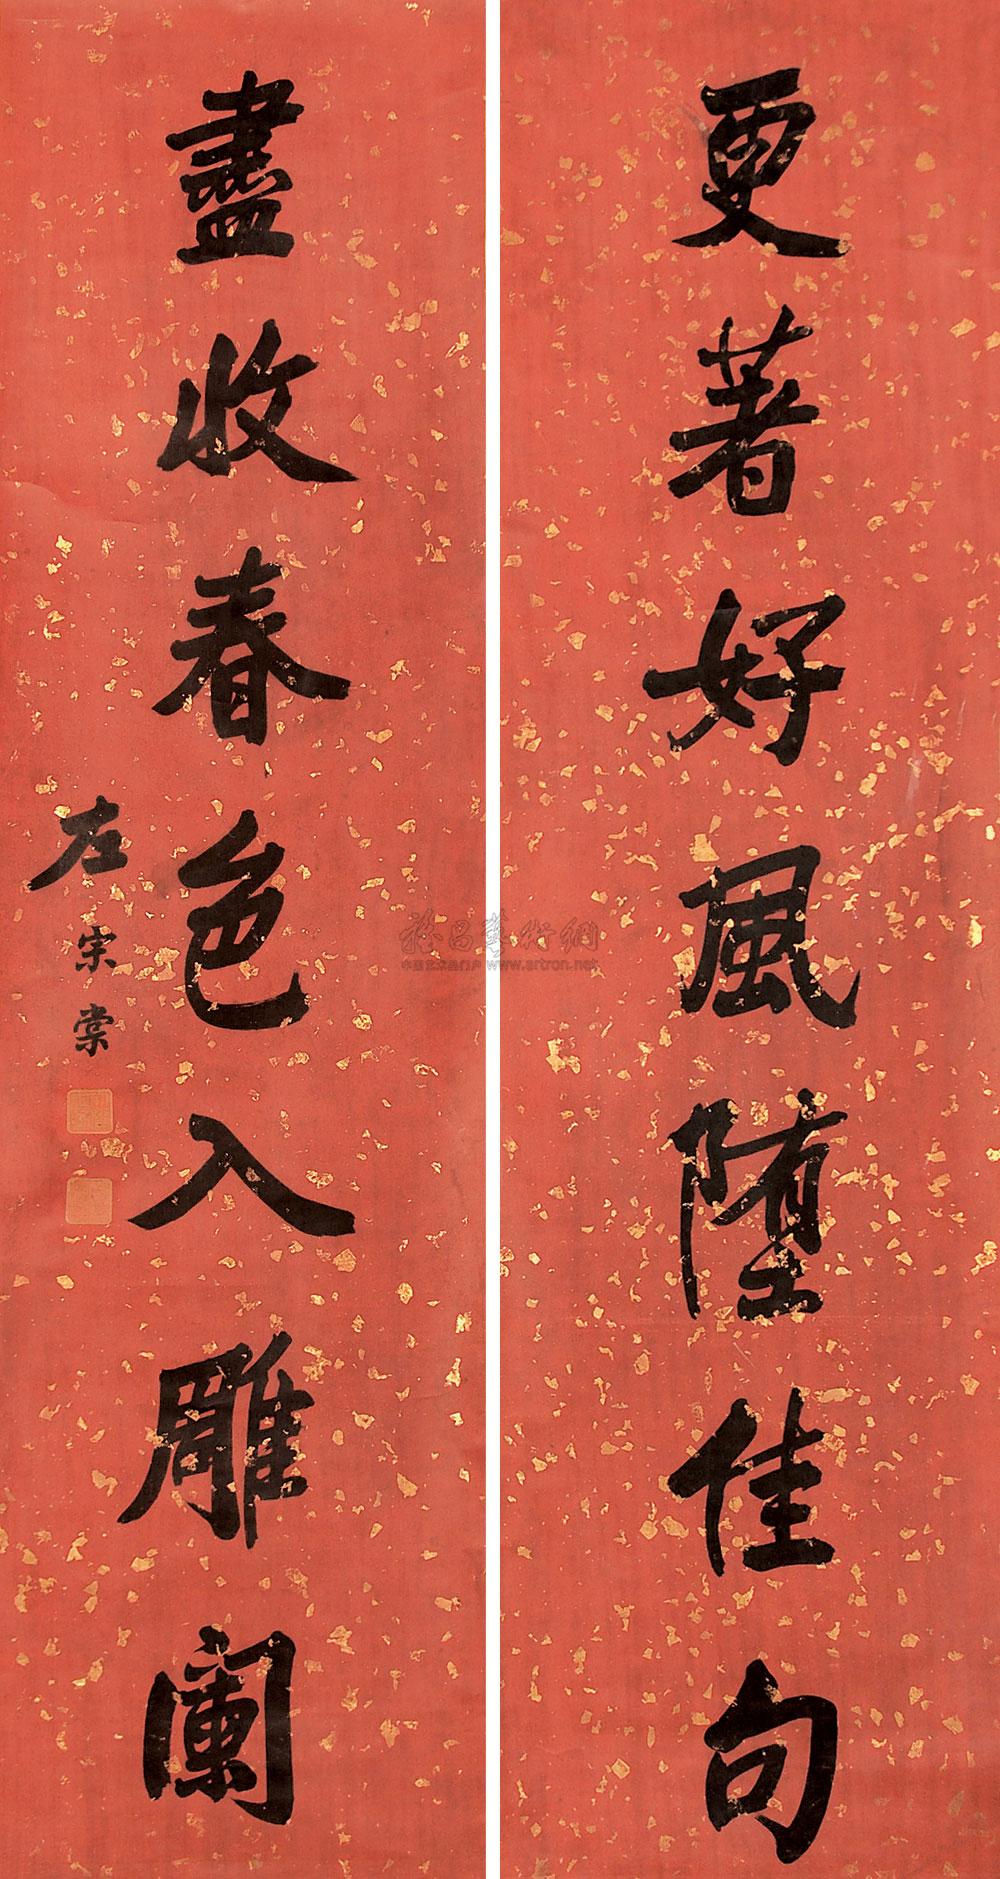 更著好風墮佳句
盡收春色入雕闌
左宗棠
雅昌藝術網
www.artron.net